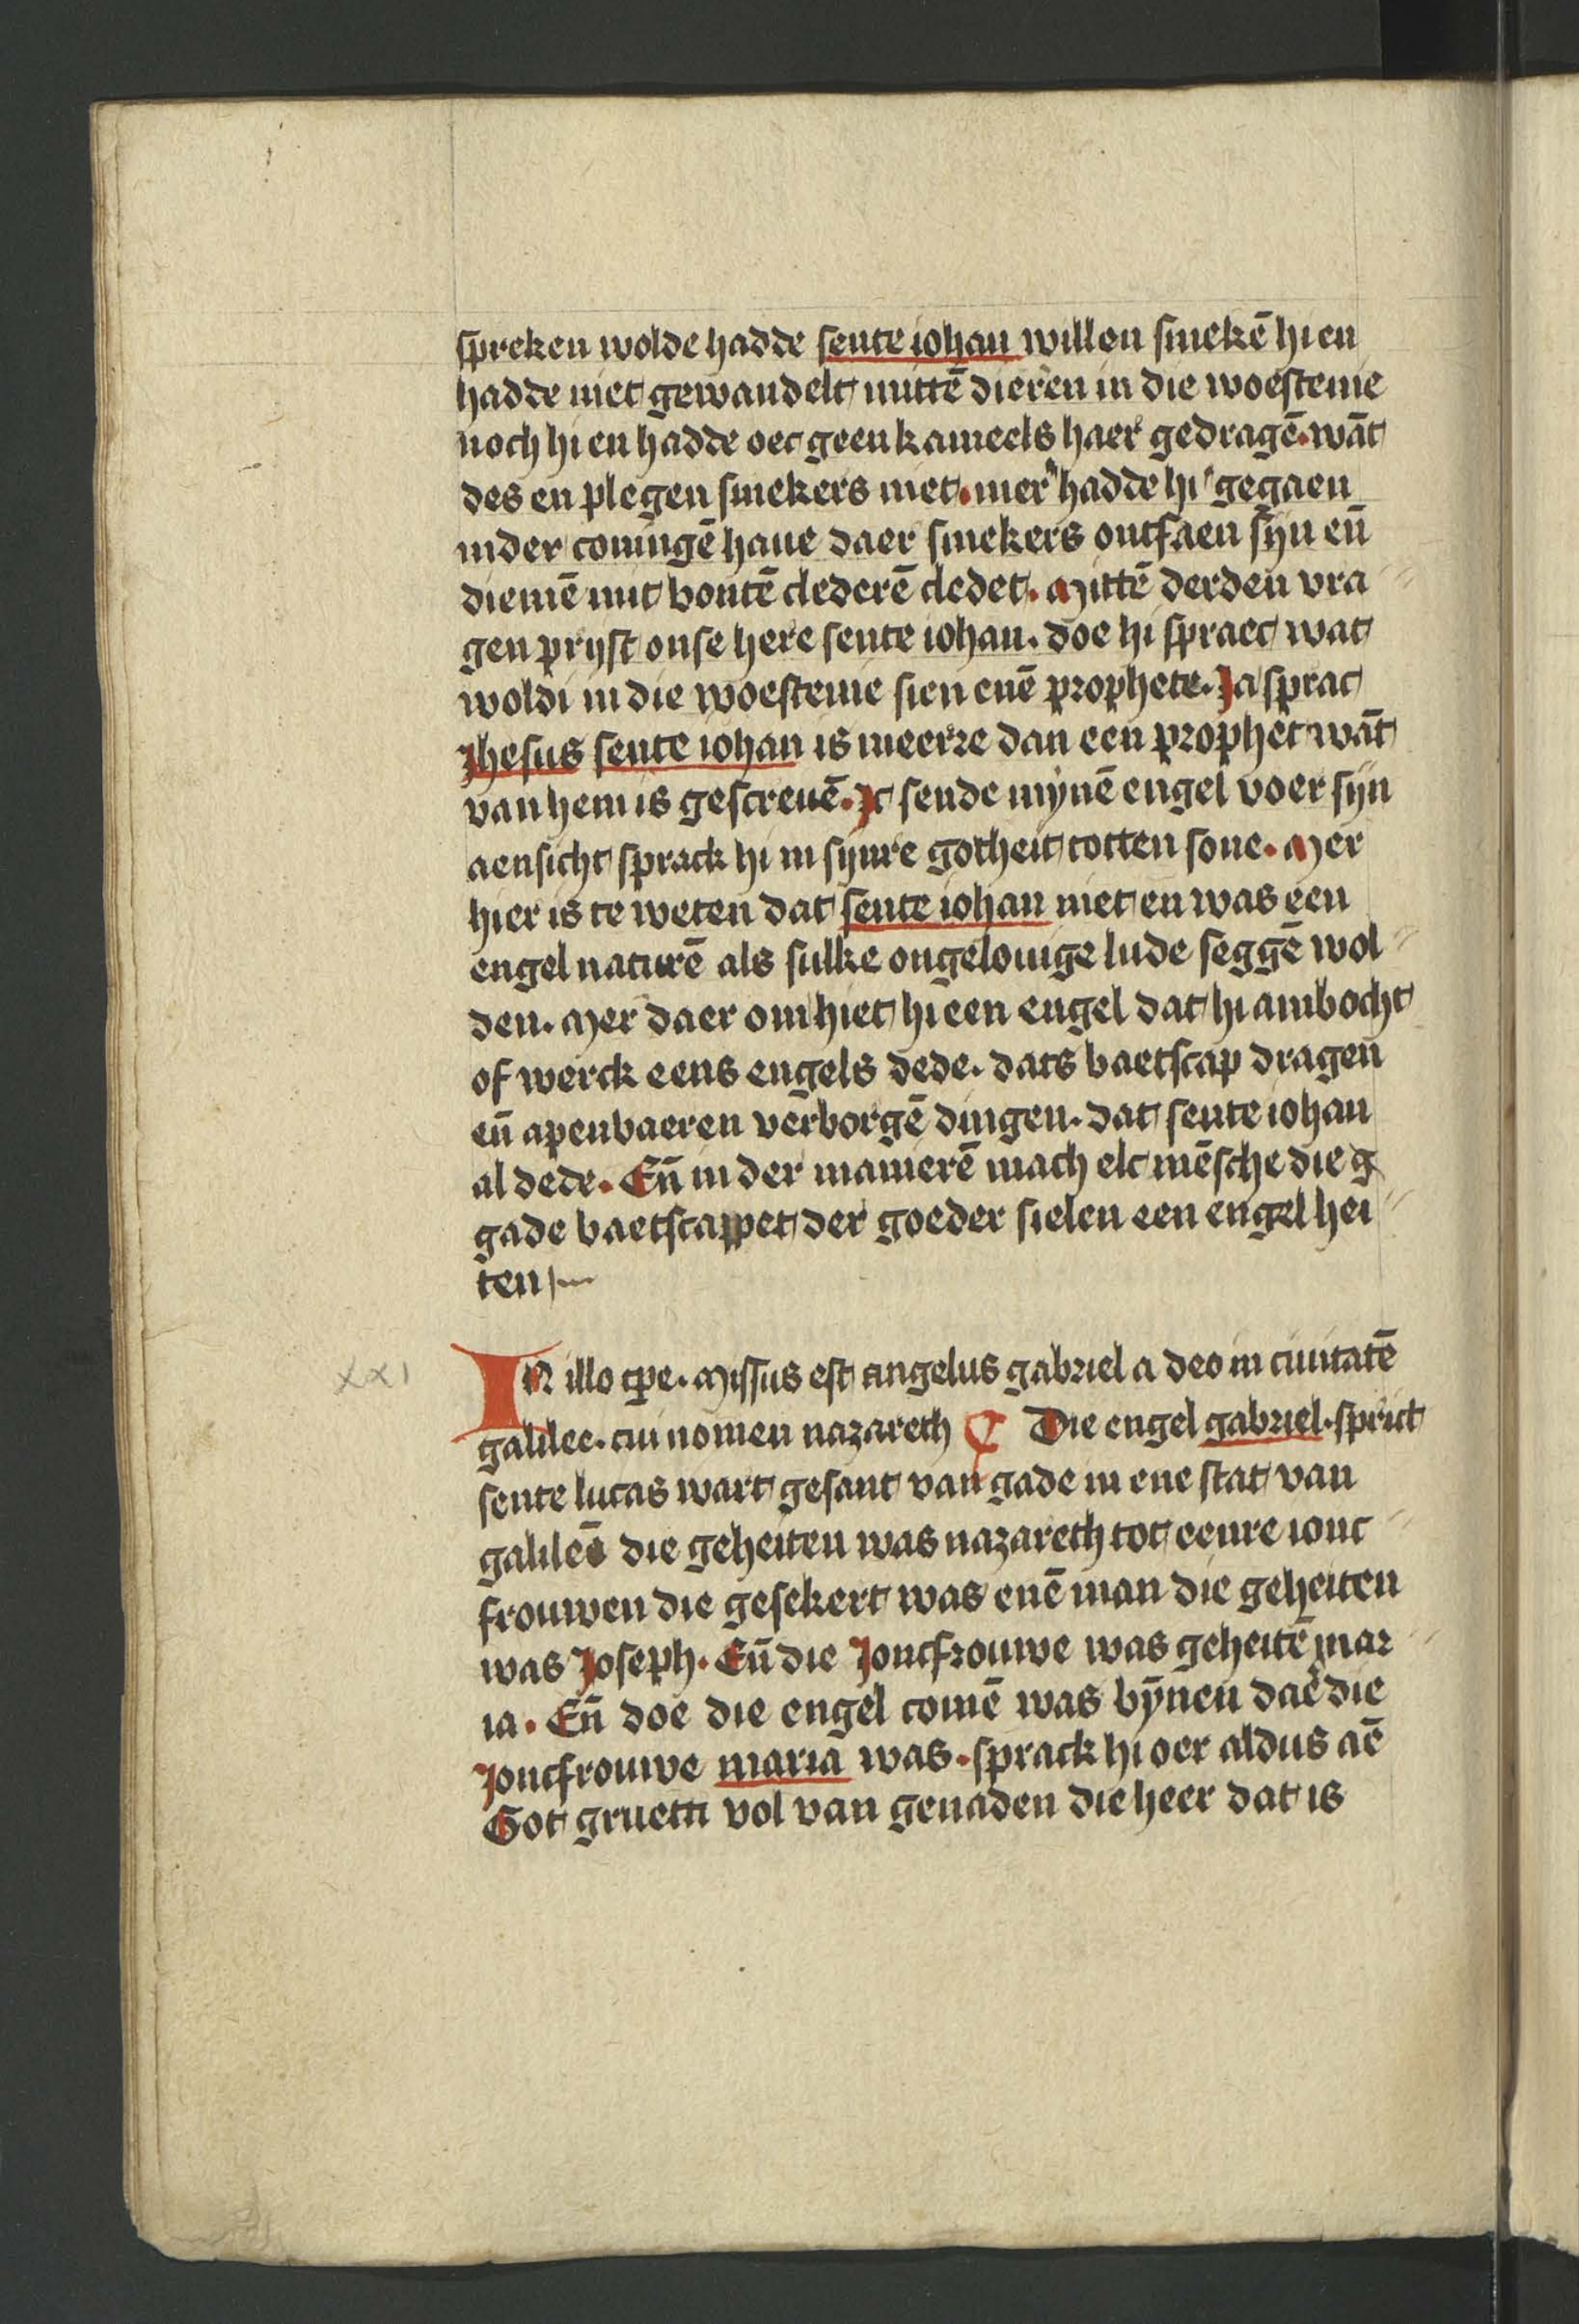 spreken wolde hadde sente iohan willen smekē hi en
hadde niet gewandelt mittē dieren in die woestenie
noch hi en hadde oec geen kameels haer gedragē. wāt
des en plegen smekers niet. mer hadde hi gegaen
inder coningē haue daer smekers ontfaen sijn en̄
diemē mit bontē clederē cledet. Mittē derden vra
gen prijst onse here sente iohan. doe hi spraec wat
woldi in die woestenie sien enē prophete. Ja sprac
Jhesus sente iohan is meerre dan een prophet wāt
van hem is gescreuē. Ic sende mijnē engel voer sijn
aensicht sprack hi in sijnre gotheit totten sone. Mer
hier is te weten dat sente iohan niet en was een
engel naturē als sulke ongelouige lude seggē wol
den. Mer daer om hiet hi een engel dat hi ambocht
of werck eens engels dede. dats baetscap dragen
en̄ apenbaeren verborgē dingen. dat sente iohan
al dede. En̄ in der manierē mach elc mēsche die g
gade baetscappet der goeder sielen een engel hei
ten
xxi
IN illo tpe. Missus est angelus gabriel a deo in ciuitatē
galilee. cui nomen nazareth Die engel gabriel. sprict
sente lucas wart gesant van gade in ene stat van
galileē die geheiten was nazareth tot eenre ionc
frouwen die gesekert was enē man die geheiten
was Joseph. En̄ die Joncfrouwe was geheitē mar
ia. En̄ doe die engel comē was bynen daer die
Joncfrouwe maria was. sprack hi oer aldus aē
Got grueti vol van genaden die heer dat is